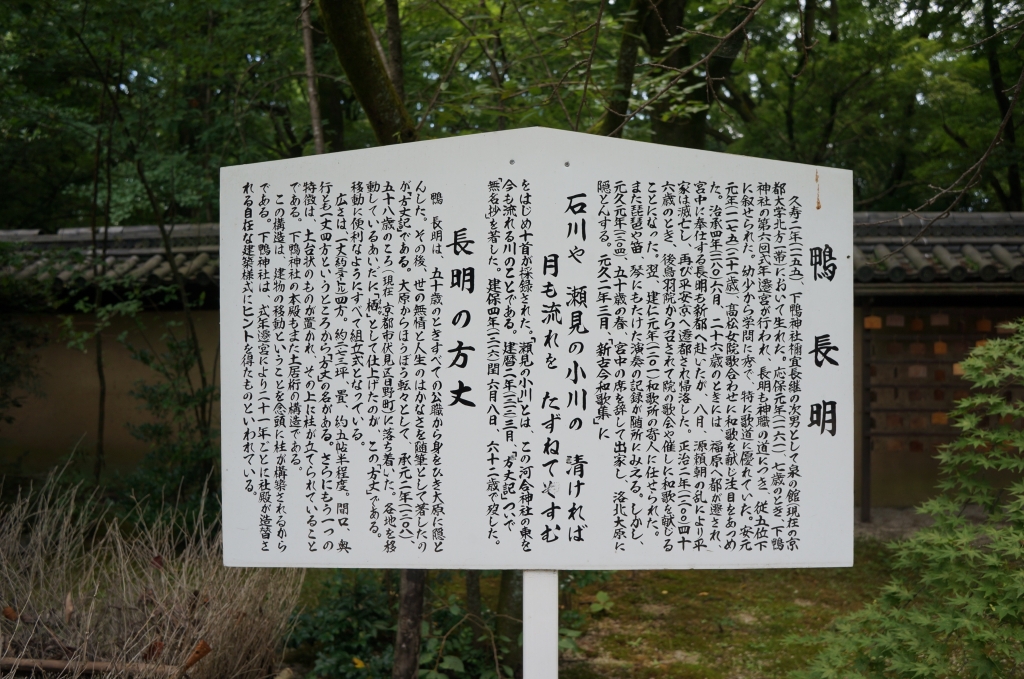 鴨 長 明
久寿二年(一一五五)、下鴨神社禰宜長継の次男として泉の館現在の京
都大学北方一帯に於いて生れた。応保元年(一一六一)七歳のとき、下鴨
神社の第六回式年遷宮が行われ、長明も神職の道につき、従五位下
に叙せられた。幼少から学問に秀で、特に歌道に優れていた。安元
元年(一一七五)二十一歳、高松女院歌合わせに和歌を献じ注目をあつめ
た。治承四年(一一八〇)六月、二十六歳のときには、福原へ都が遷され、
宮中に奉仕する長明も新都へ赴いたが、八月、源頼朝の乱により平
家は滅亡し、再び平安京へ遷都され帰洛した。正治二年(一二〇〇)四十
六歳のとき、後鳥羽院から召されて院の歌会や催しに和歌を献じる
ことになった。翌、建仁元年(一二〇一)和歌所の寄人に任せられた。
また琵琶や笛、琴にもたけた演奏の記録が随所にみえる。しかし、
元久元年(一二〇四)、五十歳の春、宮中の席を辞して出家し、洛北大原に
隠とんする。元久二年三月、「新古今和歌集」に
石川や 瀬見の小川の 清ければ
月も流れを たずねてぞすむ
をはじめ十首が採録された。「瀬見の小川」とは、この河合神社の東を
今も流れる川のことである。建暦二年(一二一二)三月、「方丈記」ついで
「無名抄」を著した。建保四年(一二一六)閏六月八日、六十二歳で歿した。
長明の方丈
鴨 長明は、五十歳のときすべての公職から身をひき大原に隠と
んした。その後、世の無情と人生のはかなさを随筆として著したの
が「方丈記」である。大原からほうぼう転々として、承元二年(一二〇八)、
五十八歳のころ(現在、京都市伏見区日野町)に落ち着いた。各地を移
動しているあいだに「栖」として仕上げたのが、この「方丈」である。
移動に便利なようにすべて組立式となっている。
広さは、一丈(約三㍍)四方。約二・七三坪、畳、約五帖半程度。間口、奥
行とも一丈四方というところから「方丈」の名がある。さらにもう一つの
特徴は、土台状のものが置かれ、その上に柱が立てられていること
である。下鴨神社の本殿もまた土居桁の構造である。
この構造は、建物の移動ということを念頭に柱が構築されるから
である。下鴨神社は、式年遷宮により二十一年ごとに社殿が造替さ
れる自在な建築様式にヒントを得たものといわれている。